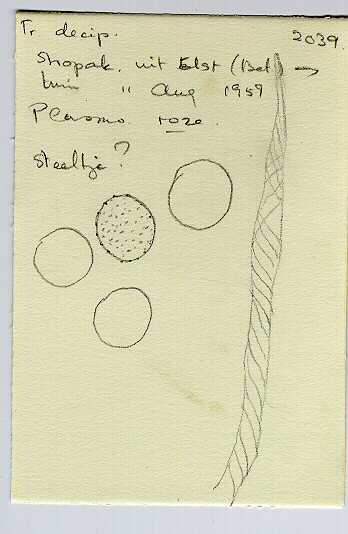 Tr decip. 2039.
Shopak. uit Elst (Bel)
tuin " Aug 1959
Plasmo. roze.
Steeltje?